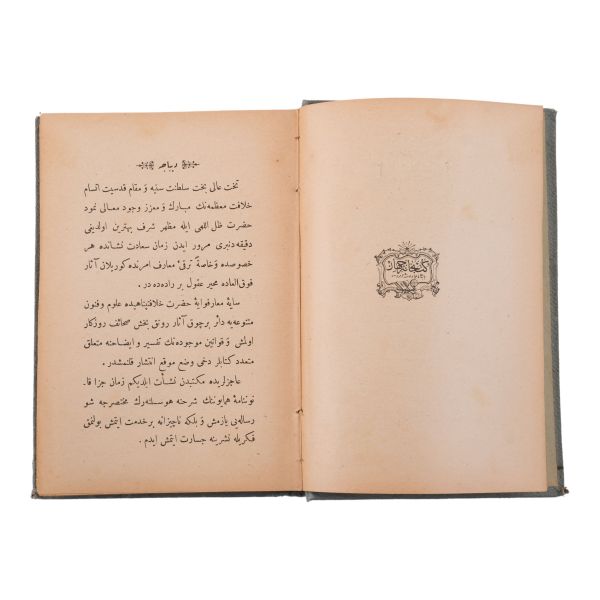 دیباجه
تخت عالی بخت سلطنت سنیه و مقام قدسیت اتسام
خلافت معظمه‌نك مبارك و معزز وجود معالی نمود
حضرت ظل اللهی ایله مظهر شرف بهترین اولدیغی
دقیقه‌دنبری مرور ایدن زمان سعادت نشانده هر
خصوصده و خاصةً ترقیٔ معارف امرنده کوریلان آثار
فوق العاده محیر عقول بر راده‌ده در.
سایهٔ معارفوایهٔ حضرت خلافتپناهیده علوم و فنون
متنوعه‌یه دائر برچوق آثار رونق بخش صحائف روزکار
اولمش و قوانین موجوده‌نك تفسیر و ایضاحنه متعلق
متعدد کتابلر دخی وضع موقع انتشار قلنمشدر.
عاجزلریده مکتبدن نشأت ایلدیکم زمان جزا قا-
نوننامهٔ همایوننك شرحنه هوسلنه‌رك مختصرجه شو
رساله‌یی یازمش و بلکه ناچیزانه برخدمت ایتمش بولنمق
فکریله نشرینه جسارت ایتمش ایدم.
کتبخانهٔ جهان